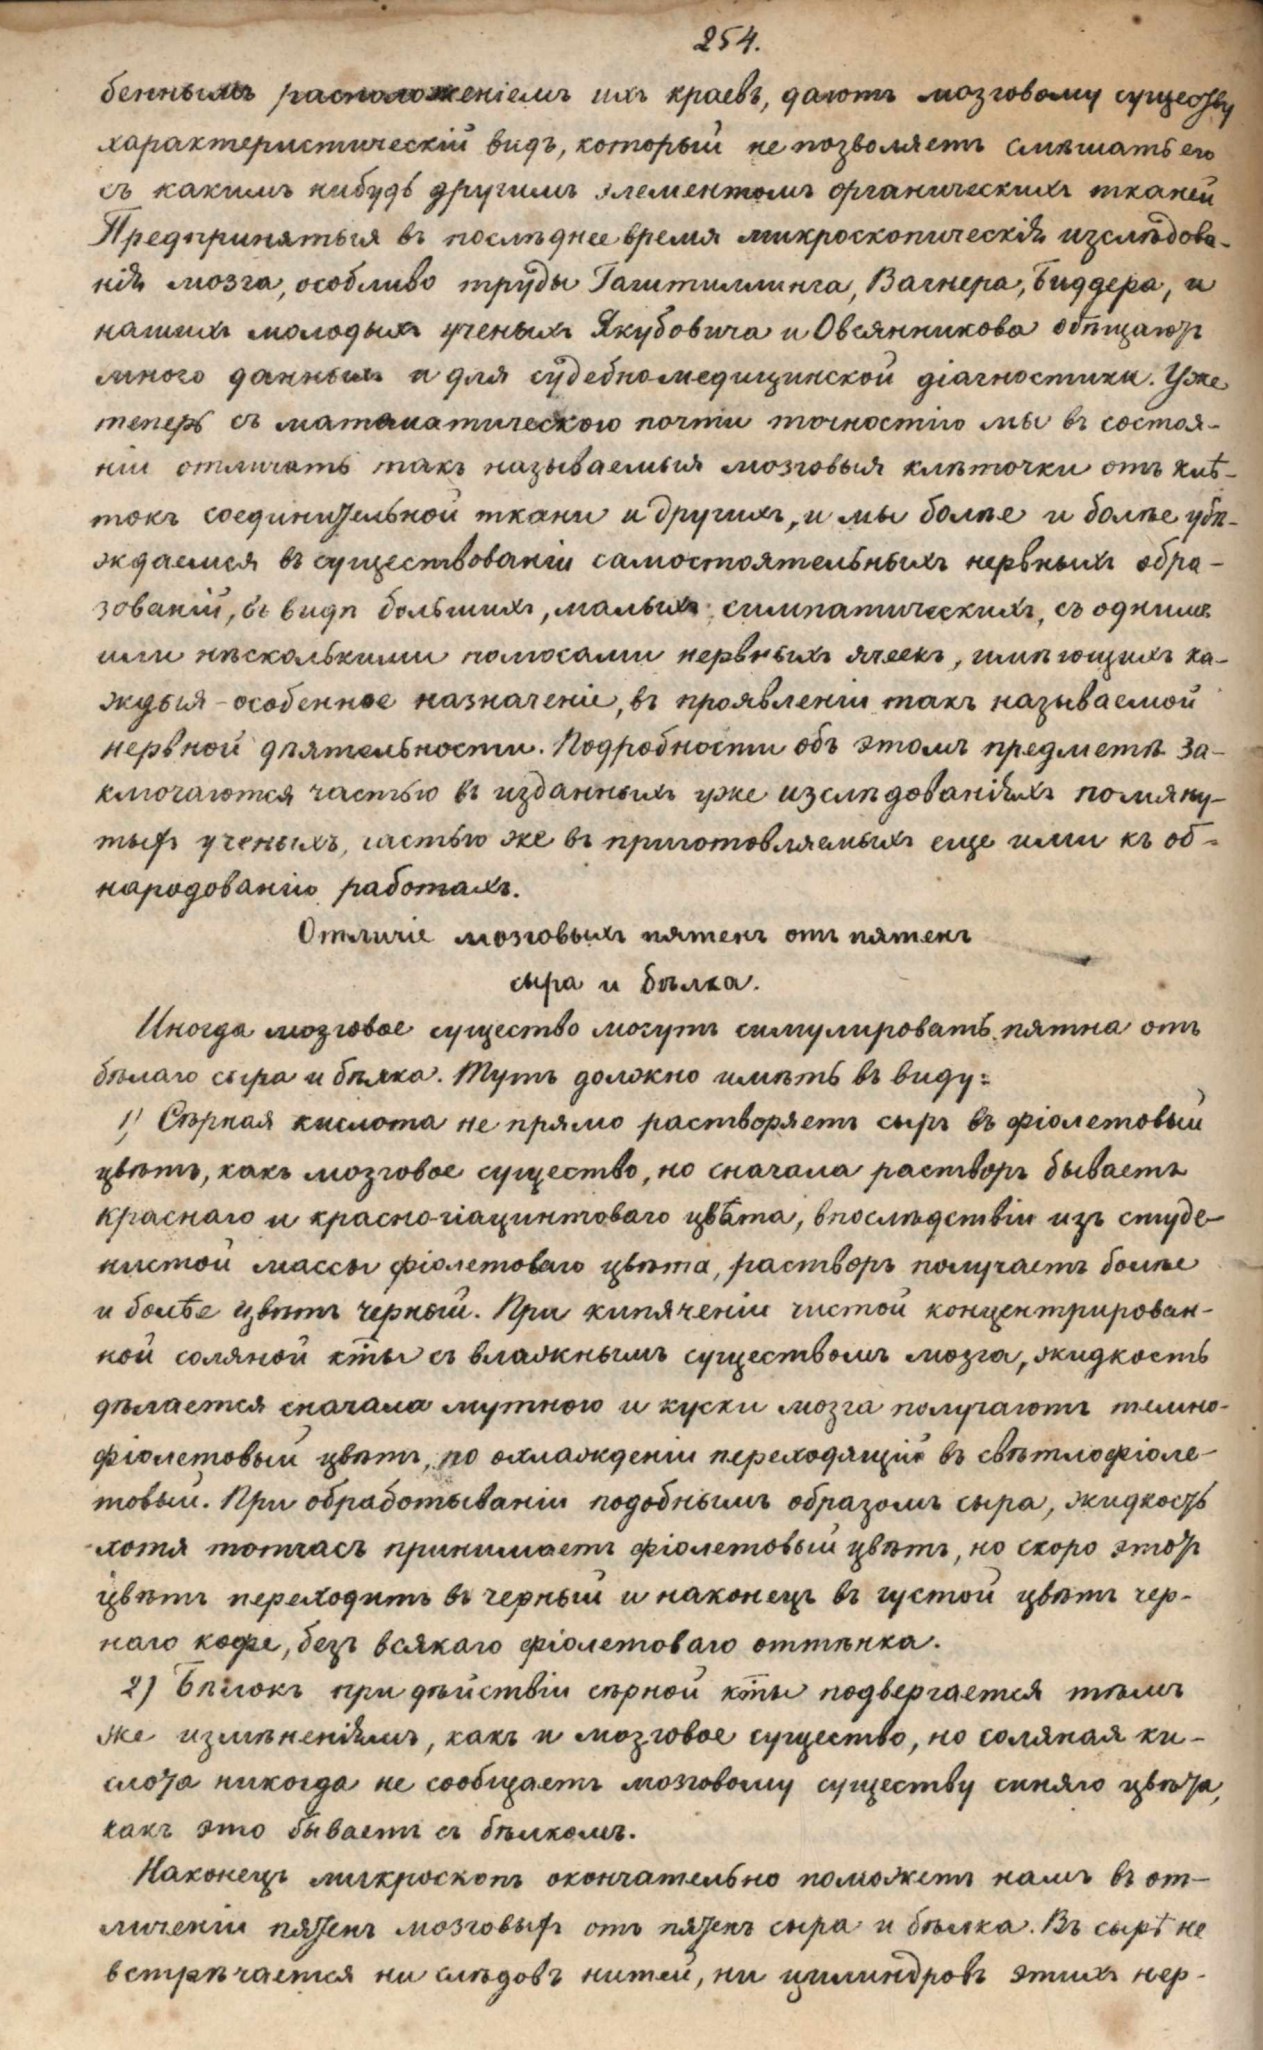 254.
беннымъ расположеніемъ ихъ краевъ, даютъ мозговому существу
характеристическій видъ, который не позволяетъ смѣшать его
съ какимъ нибудь другимъ элементомъ органическихъ тканей
Предпринятыя въ послѣднее время микроскопическія изслѣдова-
нія мозга, особливо труды Гаштиллинга, Вагнера, Биддера, и
нашихъ молодыхъ ученыхъ Якубовича и Овсянникова обѣщаютъ
много данныхъ и для судебномедицинской діагностики. Уже
теперь съ математическою почти точностію мы въ состоя-
ніи отличать такъ называемыя мозговыя клѣточки отъ клѣ-
токъ соединительной ткани и другихъ, и мы болѣе и болѣе убѣ-
ждаемся въ существованіи самостоятельныхъ нервныхъ обра-
зованій, въ видѣ большихъ, малыхъ, симпатическихъ, съ однимъ
или нѣсколькими полюсами нервныхъ ячеекъ, имѣющихъ ка-
ждыя - особенное назначеніе, въ проявленіи такъ называемой
нервной дѣятельности. Подробности объ этомъ предметѣ за-
ключаются частью въ изданныхъ уже изслѣдованіяхъ помяну-
тыхъ ученыхъ, частью же въ приготовляемыхъ еще ими къ об-
народованію работахъ.
Отличіе мозговыхъ пятенъ отъ пятенъ
сыра и бѣлка.
Иногда мозговое существо могутъ симулировать пятна отъ
бѣлаго сыра и бѣлка. Тутъ должно имѣть въ виду:
1) Сѣрная кислота не прямо растворяетъ сыръ въ фіолетовый
цвѣтъ, какъ мозговое существо, но сначала растворъ бываетъ
краснаго и красно-гіацинтоваго цвѣта, впослѣдствіи изъ студе-
нистой массы фіолетоваго цвѣта, растворъ получаетъ болѣе
и болѣе цвѣтъ черный. При кипяченіи чистой концентрирован-
ной соляной кты съ влажнымъ существомъ мозга, жидкость
дѣлается сначала мутною и куски мозга получаютъ темно-
фіолетовый цвѣтъ, по охлажденіи переходящій въ свѣтлофіоле-
товый. При обработываніи подобнымъ образомъ сыра, жидкость
хотя тотчасъ принимаетъ фіолетовый цвѣтъ, но скоро этотъ
цвѣтъ переходитъ въ черный и наконецъ въ густой цвѣтъ чер-
наго кофе, безъ всякаго фіолетоваго оттѣнка.
2) Бѣлокъ при дѣйствіи сѣрной кты подвергается тѣмъ
же измѣненіямъ, какъ и мозговое существо, но соляная ки-
слота никогда не сообщаетъ мозговому существу синяго цвѣта,
какъ это бываетъ съ бѣлкомъ.
Наконецъ микроскопъ окончательно поможетъ намъ въ от-
личеніи пятенъ мозговыхъ отъ пятенъ сыра и бѣлка. Въ сырѣ не
встрѣчается ни слѣдовъ нитей, ни цилиндровъ этихъ нер-